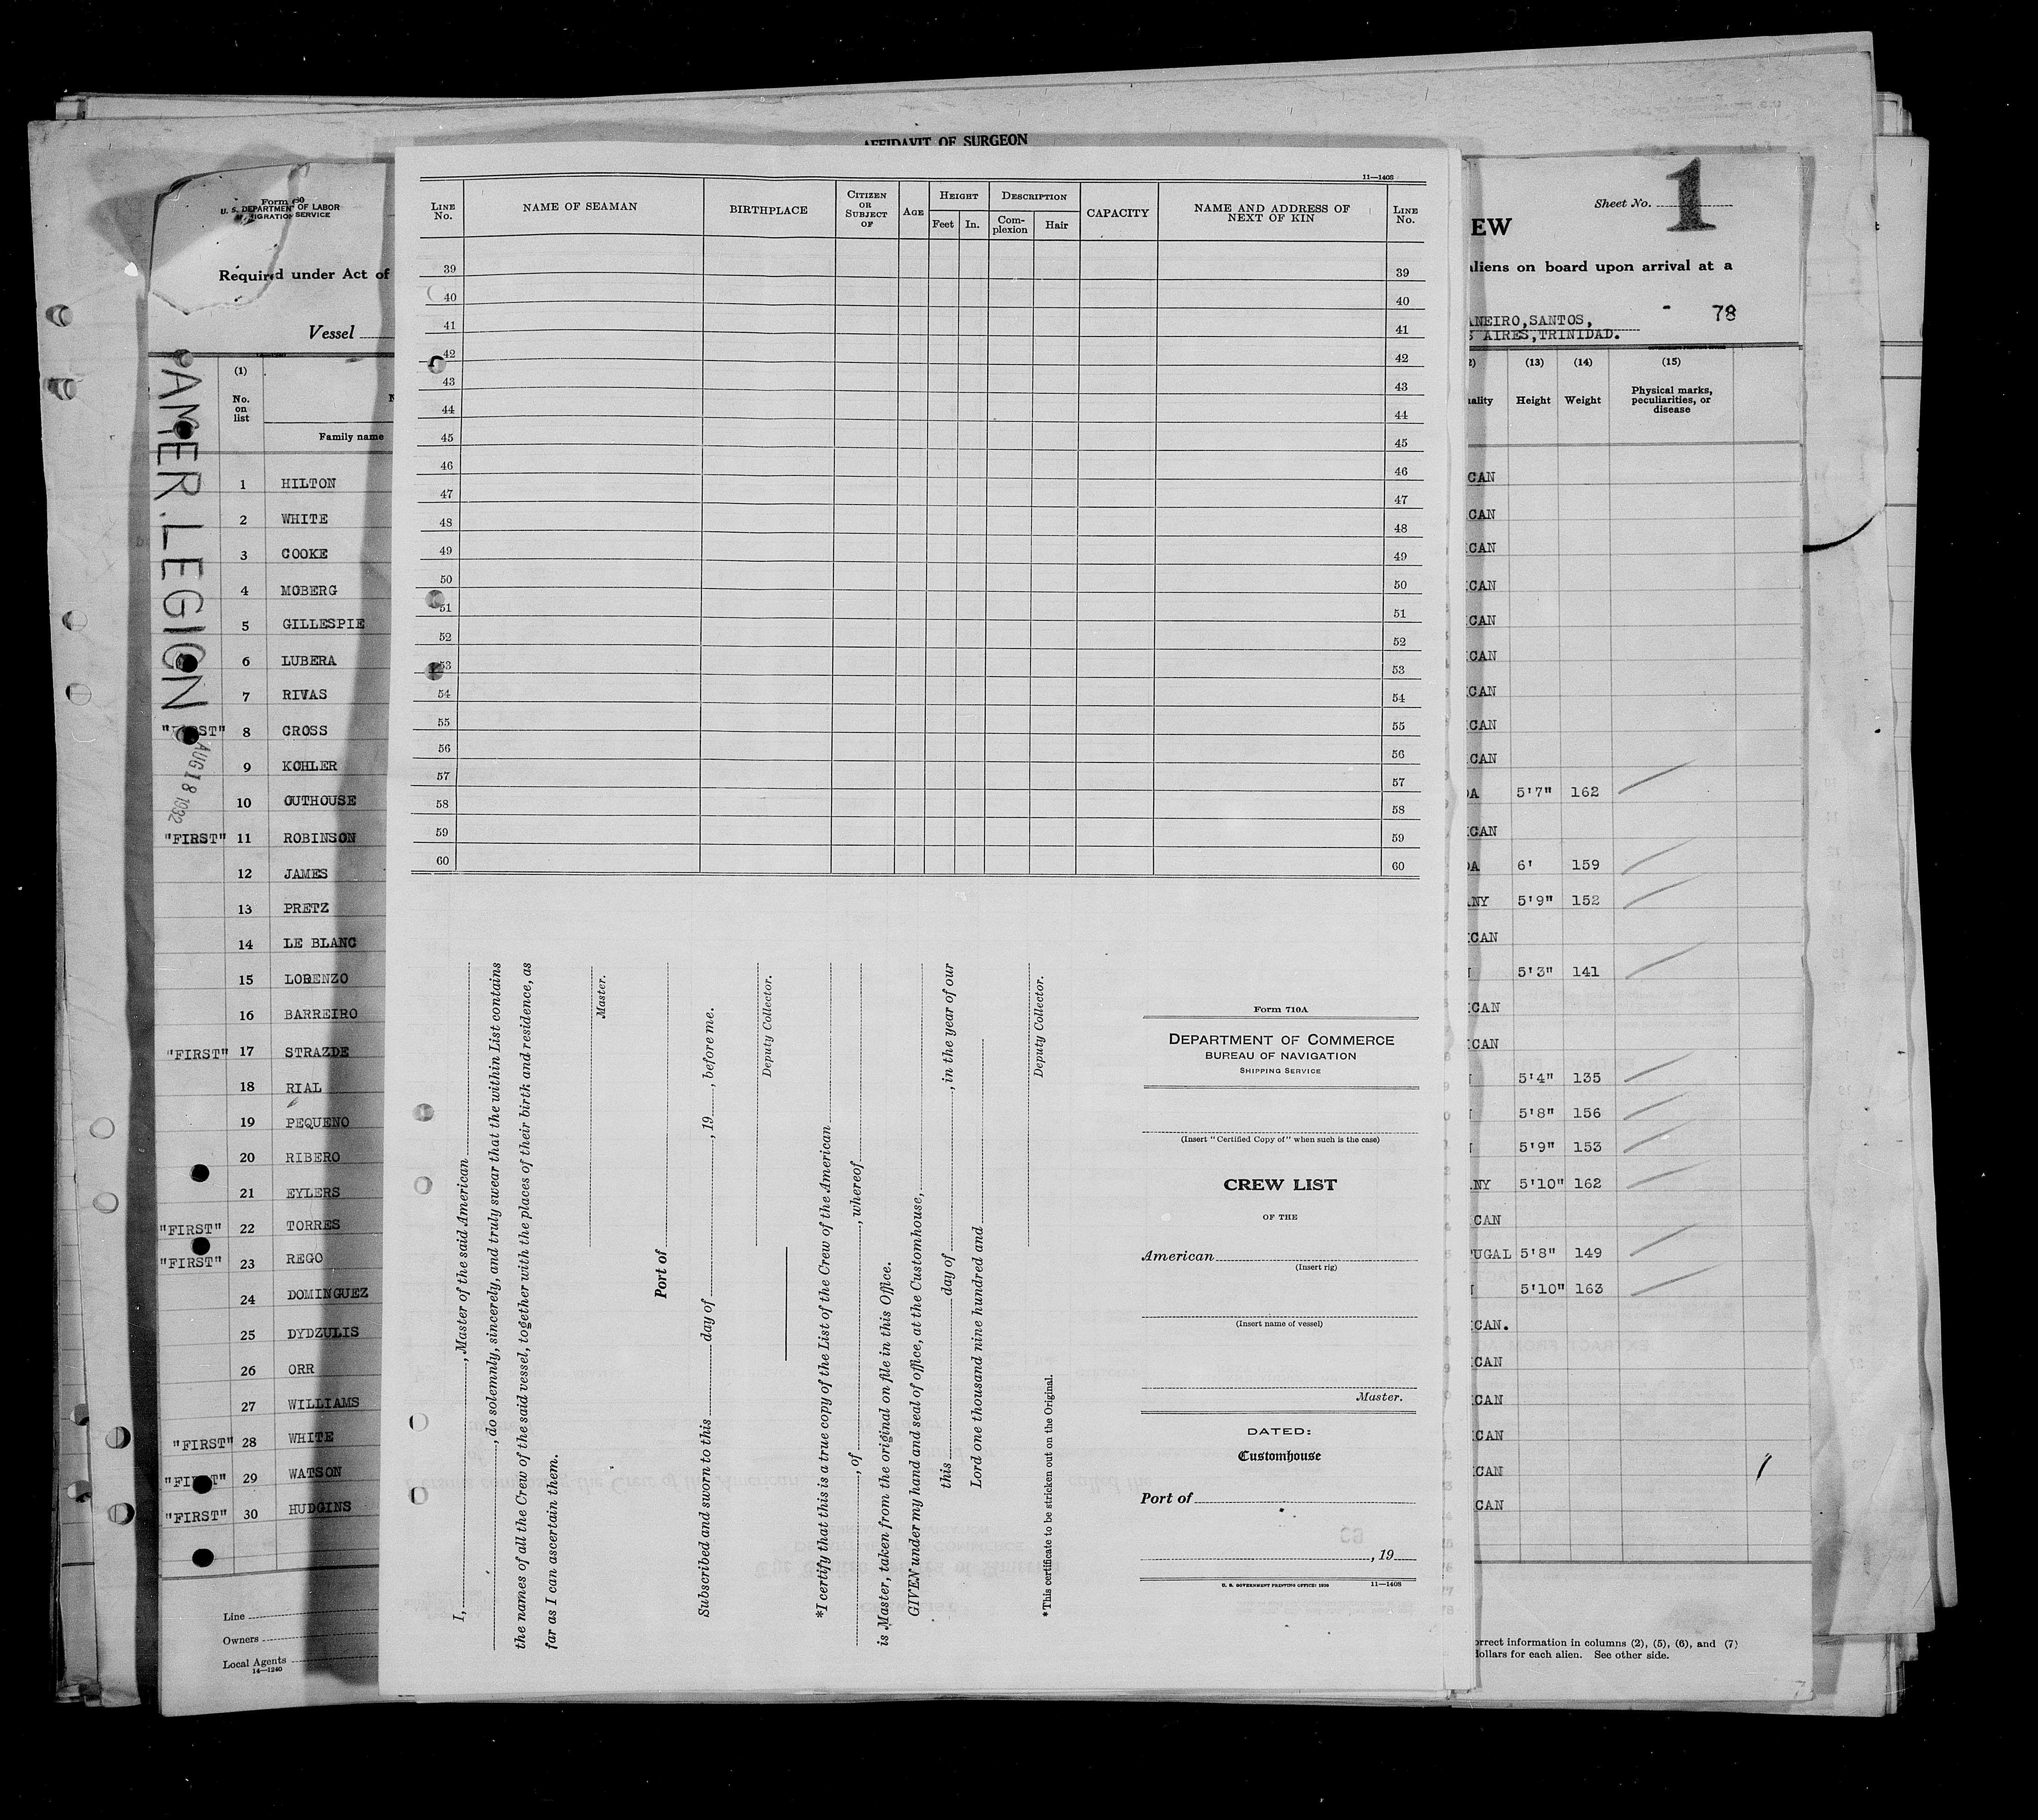 AFFIDAVIT OF SURGEON
U. S. DEPARTMENT OF LABOR
Required under Act of
Vessel
AMER. LEGION
AUG 18 1932
(1)
No.
on
list
Family name
1 HILTON
2 WHITE
3 COOKE
4 MOBERG
5 GILLESPIE
6 LUBERA
7 RIVAS
8 CROSS
9 KOHLER
10 OUTHOUSE
"FIRST" 11 ROBINSON
12 JAMES
13 PRETZ
14 LE BLANC
15 LORENZO
16 BARREIRO
"FIRST" 17 STRAZDE
18 RIAL
19 PEQUENO
20 RIBERO
21 EYLERS
"FIRST" 22 TORRES
"FIRST" 23 REGO
24 DOMINGUEZ
25 DYDZULIS
26 ORR
27 WILLIAMS
"FIRST" 28 WHITE
29 WATSON
"FIRST" 30 HUDGINS
Line
Owners
Local Agents
14—1240
11—1408
LINE No. NAME OF SEAMAN BIRTHPLACE CITIZEN OR SUBJECT OF AGE HEIGHT Feet In. DESCRIPTION Com-plexion Hair CAPACITY NAME AND ADDRESS OF NEXT OF KIN LINE No.
39 39
40 40
41 41
42 42
43 43
44 44
45 45
46 46
47 47
48 48
49 49
50 50
51 51
52 52
53 53
54 54
55 55
56 56
57 57
58 58
59 59
60 60
I, , Master of the said American
, do solemnly, sincerely, and truly swear that the within List contains
the names of all the Crew of the said vessel, together with the places of their birth and residence, as
far as I can ascertain them.
Master.
Port of
Subscribed and sworn to this day of , 19 , before me.
Deputy Collector.
*I certify that this is a true copy of the List of the Crew of the American
, of , whereof
is Master, taken from the original on file in this Office.
GIVEN under my hand and seal of office, at the Customhouse,
this day of , in the year of our
Lord one thousand nine hundred and
Deputy Collector.
*This certificate to be stricken out on the Original.
Form 710A
DEPARTMENT OF COMMERCE
BUREAU OF NAVIGATION
SHIPPING SERVICE
(Insert "Certified Copy of" when such is the case)
CREW LIST
OF THE
American
(Insert rig)
(Insert name of vessel)
Master.
DATED:
Customhouse
Port of
, 19
U. S. GOVERNMENT PRINTING OFFICE: 1930 11—1408
Sheet No. 1
EW
aliens on board upon arrival at a
ANEIRO,SANTOS, - 78
S AIRES,TRINIDAD.
(13) (14) (15)
ality Height Weight Physical marks, peculiarities, or disease
CAN
CAN
CAN
CAN
CAN
CAN
CAN
CAN
CAN
DA 5'7" 162
CAN
DA 6' 159
NY 5'9" 152
CAN
5'3" 141
CAN
CAN
5'4" 135
5'8" 156
5'9" 153
NY 5'10" 162
CAN
UGAL 5'8" 149
5'10" 163
CAN.
CAN
CAN
CAN
CAN
CAN
orrect information in columns (2), (5), (6), and (7)
dollars for each alien. See other side.